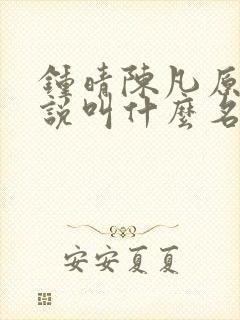 鍾晴陳凡原
說叫什麼名
安安夏夏